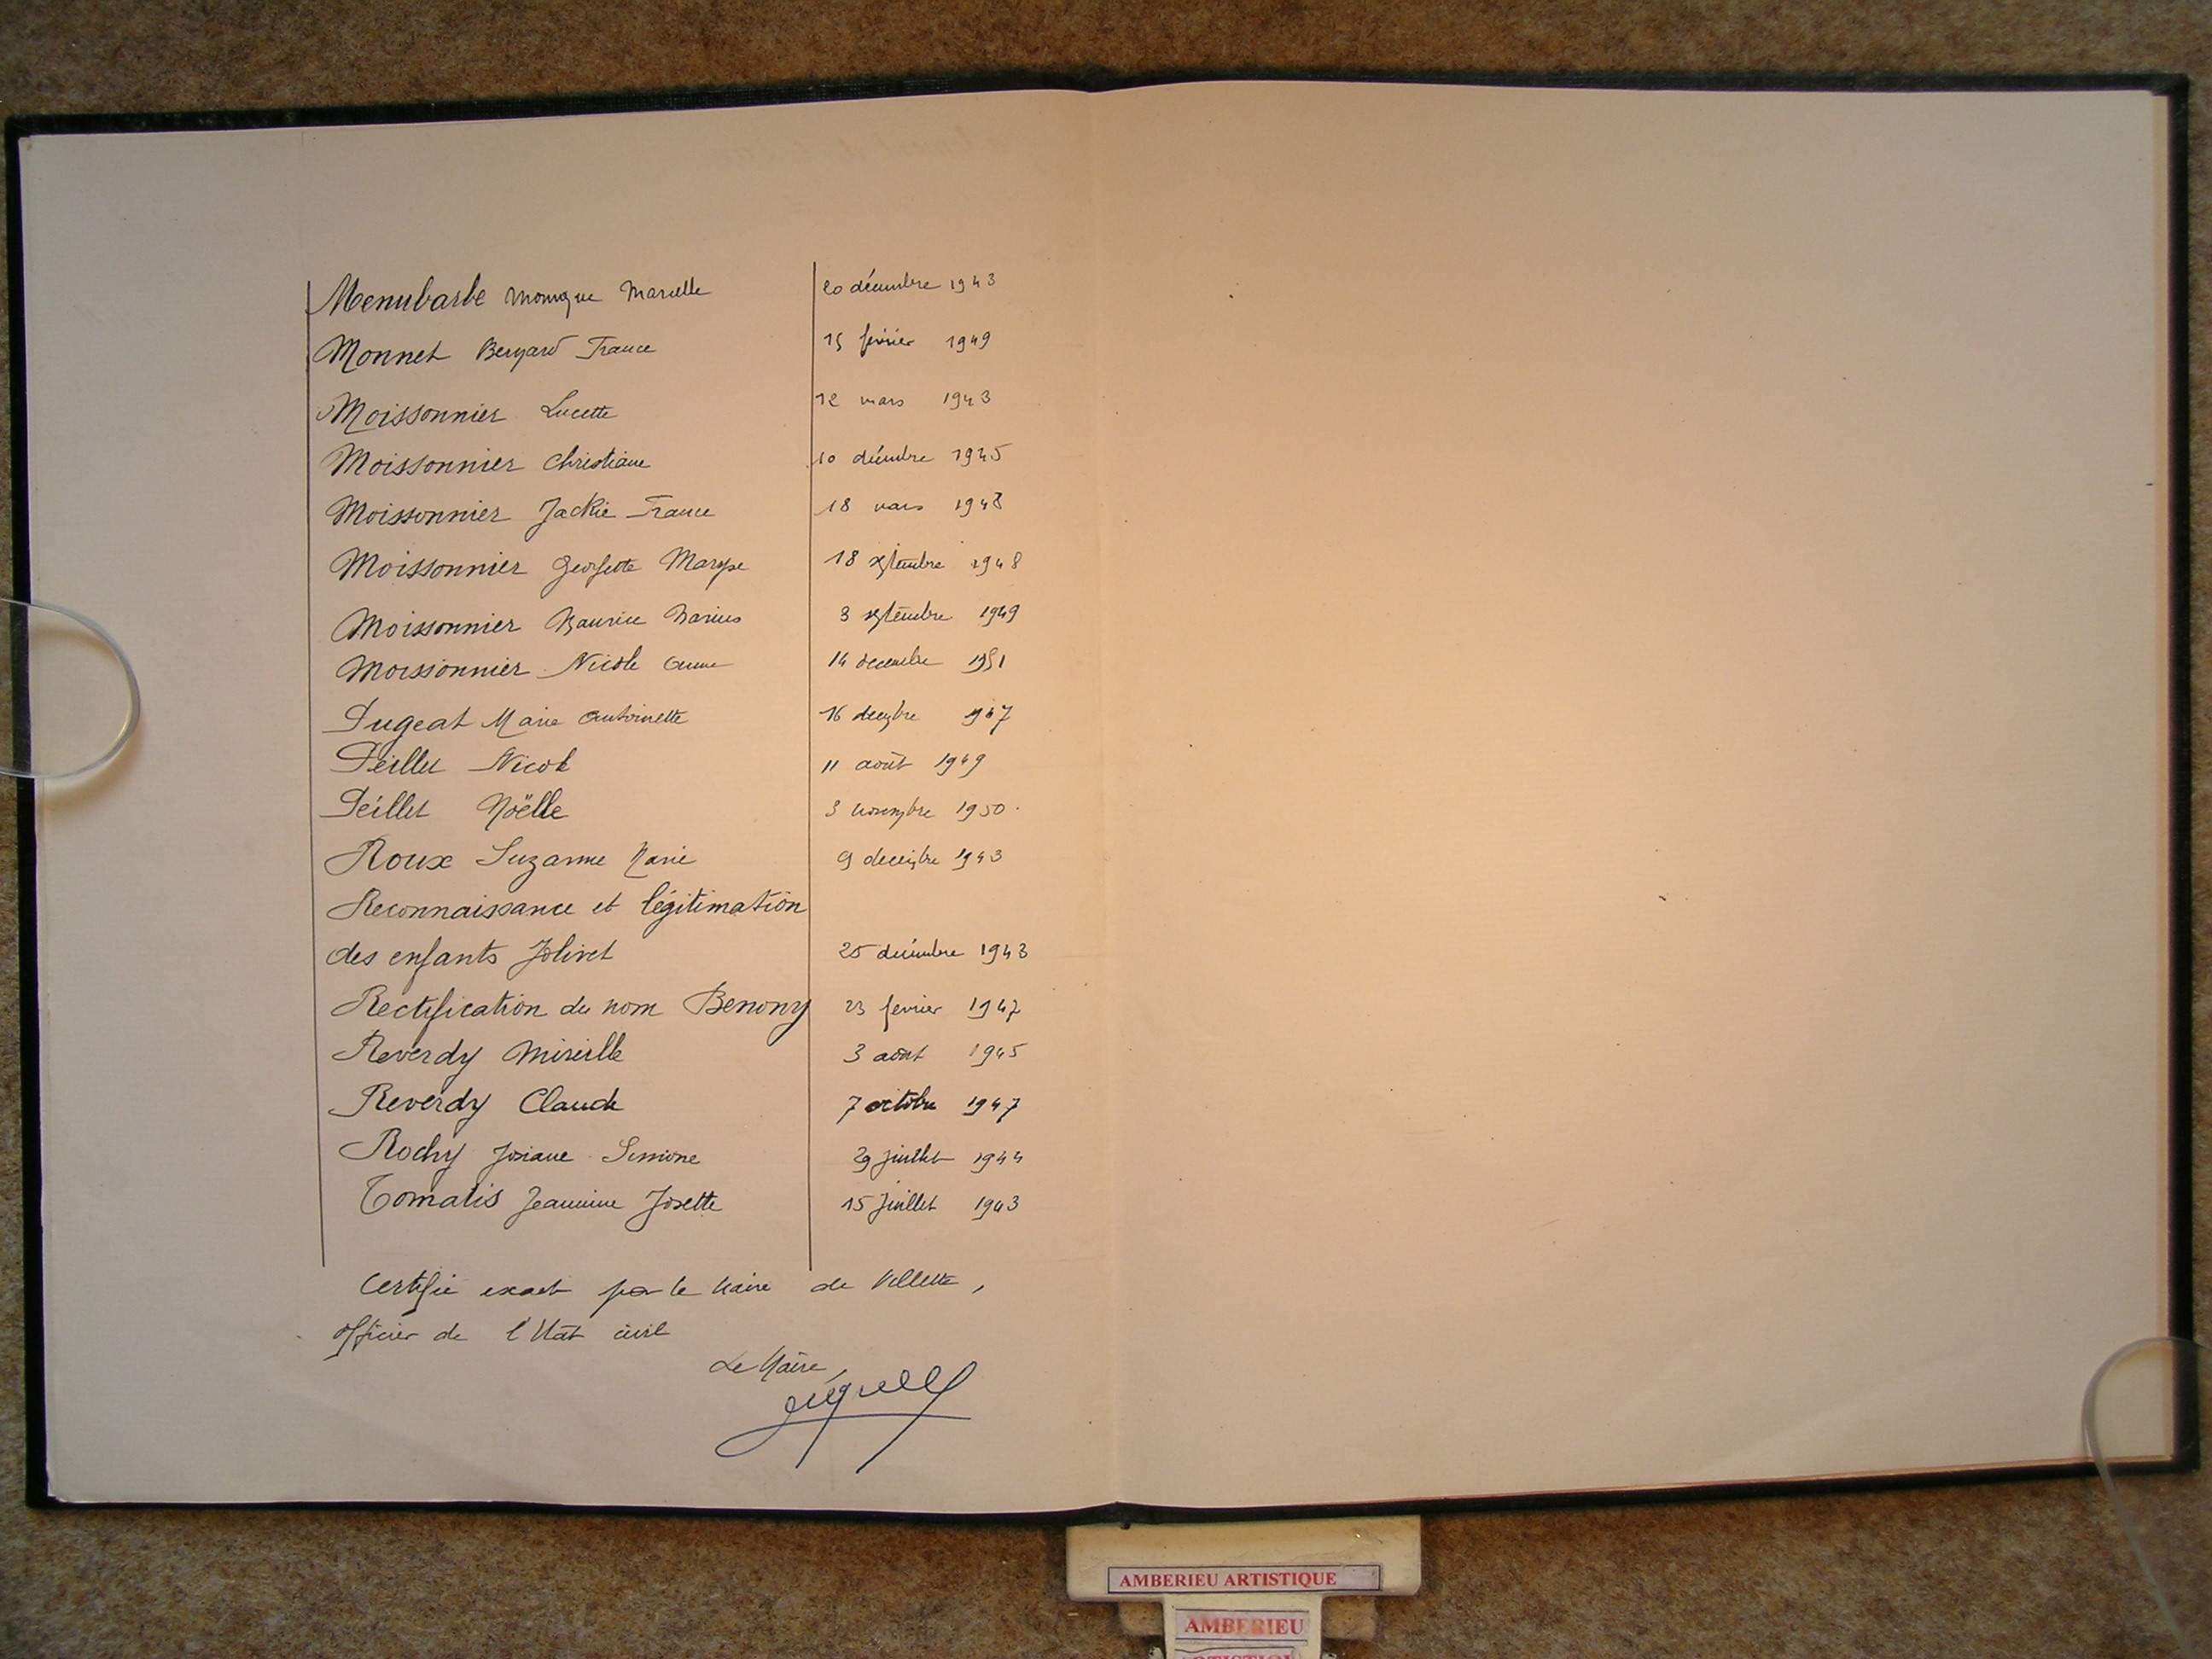 Menubarbe Monique Marcelle 20 décembre 1943
Monnet Bernard France 15 février 1949
Moissonnier Lucette 12 mars 1943
Moissonnier Christiane 10 décembre 1945
Moissonnier Jackie France 18 mars 1948
Moissonnier Georgette Maryse 18 septembre 1948
Moissonnier Maurice Marius 3 septembre 1949
Moissonnier Nicole Anne 14 decembre 1951
Pugeat Marie Antoinette 16 decembre 1947
Peillet Nicole 11 août 1949
Péillet Noëlle 3 novembre 1950
Roux Suzanne Marie 9 decembre 1943
Reconnaissance et légitimation
des enfants Jolivet 25 décembre 1943
Rectification du nom Benony 23 fevrier 1947
Reverdy Mireille 3 août 1945
Reverdy Claude 7 octobre 1947
Rochy Josiane Simone 29 juillet 1944
Tomatis Jeannine Josette 15 Juillet 1943
Certifié exact par le Maire de Villette,
Officier de l'Etat civil
Le Maire,
AMBERIEU ARTISTIQUE
AMBERIEU
ARTISTIQUE